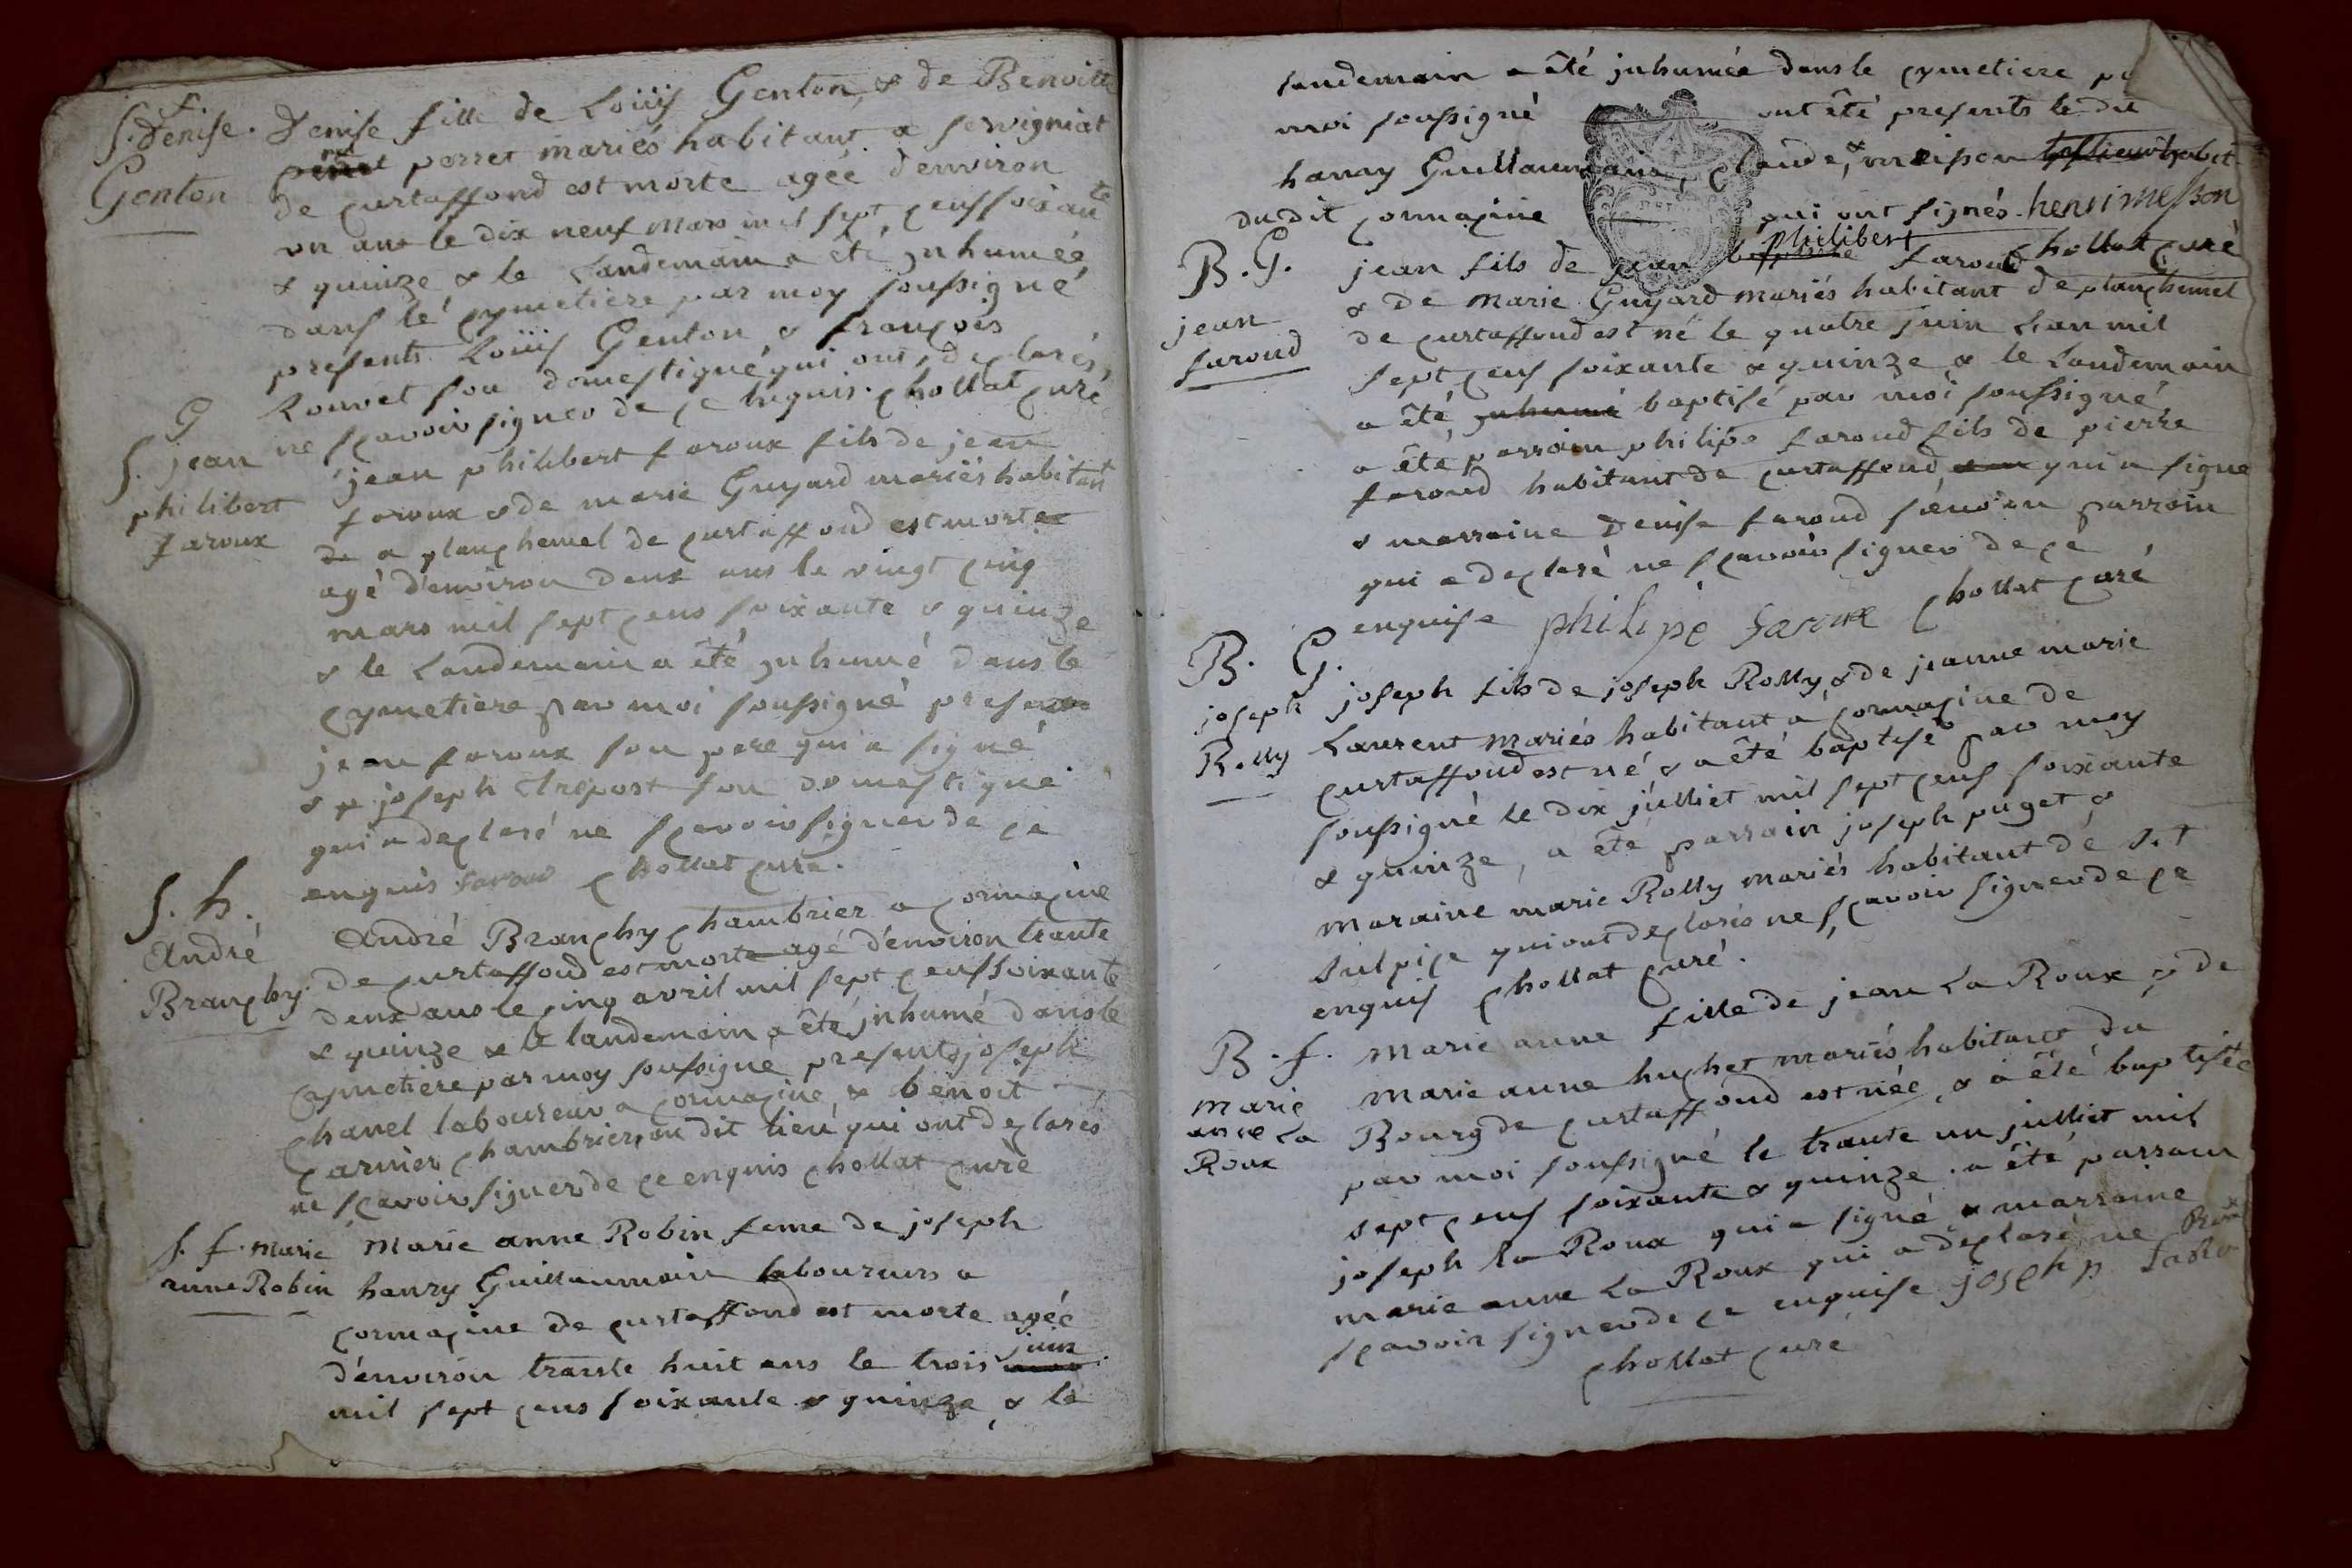 f.
S. Denise.
Genton
Denise fille de Loüis Genton, & de Benoitte
perret mariés habitant a servigniat
de curtaffond est morte agée d'environ
un ans le dix neuf mars mil sept cens soixante
& quinze & le Landemain a été inhumée
dans le cymetiere par moy soussigné
presents Loüis Genton & françois
Louvet son domestique qui ont declarés
ne scavoir signer de ce enquis. chollat curé
G
S. jean
philibert
faroux
jean philibert faroux fils de jean
faroux & de marie Guyard mariés habitant
de a planchemel de curtaffond est morte
agé d'environ deux ans le vingt cinq
mars mil sept cens soixante & quinze
& le Landemain a été inhumé dans le
cymetiere par moi soussigné presents
jean faroux son pere qui a signé
& joseph trepost son domestique
qui a declaré ne scavoir signer de ce
enquis faroux chollat curé.
S. h.
André
Branchy.
André Branchy chambrier a cormacine
de curtaffond est morte agé d'environ trante
deux ans le cinq avril mil sept cens soixante
& quinze & le landemain a été inhumé dans le
cymetiere par moy soussigné presents joseph
chanel laboureur a cormacine, & benoit
carnier chambrier, au dit lieu qui ont declarés
ne scavoir signer de ce enquis chollat curé
S. f. marie
anne Robin
Marie anne Robin feme de joseph
hanry Guillaumain laboureurs a
cormacine de curtaffond est morte agée
d'environ trante huit ans le trois juin
mil sept cens soixante & quinze & le
landemain a été inhumée dans le cymetiere
moi soussigné ont été presents le dit
hanry Guillaumain, claude,
du dit cormacine qui ont signés. henri messon
chollat curé
B. G.
jean
faroud
jean fils de jean philibert faroud
& de marie Guyard mariés habitant de planchemel
de curtaffond est né le quatre juin L'an mil
sept cens soixante & quinze & le Landemain
a été inhumé baptisé par moi soussigné
a été parrain philipe faroud fils de pierre
faroud habitant de curtaffond qui a signe
& marraine Denise faroud parrain
qui a declaré ne scavoir signer de ce
enquise philipe faroux chollat curé
B. G.
joseph
Rolly
joseph fils de joseph Rolly, & de jeanne marie
Laurent mariés habitant a cormacine de
curtaffond est né & a été baptisé par moy
soussigné le dix julliet mil sept cens soixante
& quinze, a été parrain joseph puget &
maraine marie Rolly mariés habitant de S.t
Sulpice qui ont declarés ne scavoir signer de ce
enquis chollat curé.
B. f.
marie
anne La
Roux
Marie anne fille de jean La Roux & de
Marie anne huchet mariés habitants du
Bourg de curtaffond est née, & a été baptisée
par moi soussigné le trante un julliet mil
sept cens soixante & quinze. a été parrain
joseph La Roux qui a signé & marraine
marie anne La Roux qui a declaré ne
scavoir signer de ce enquise joseph
chollat curé